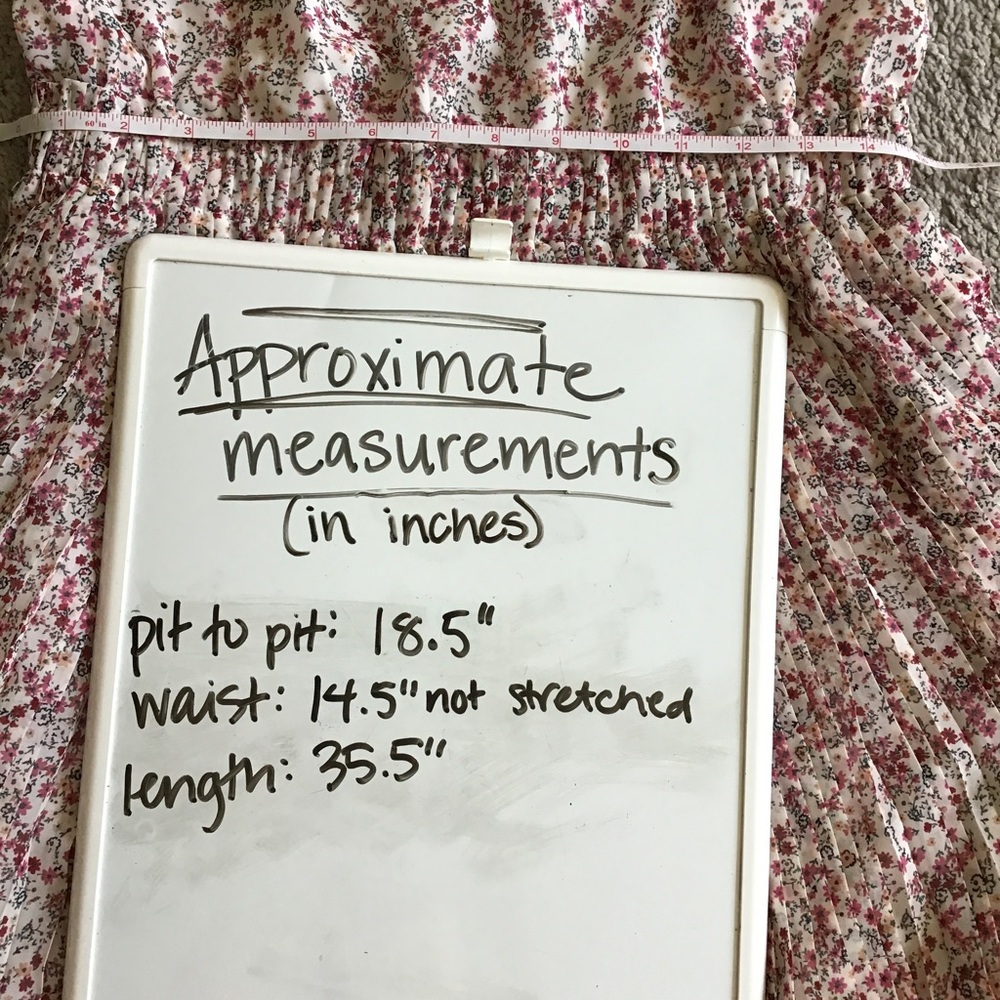 60 in 2 3 4 5 6 7 8 9 10 11 12 13 14
Approximate
measurements
(in inches)
pit to pit: 18.5"
waist: 14.5" not stretched
length: 35.5"